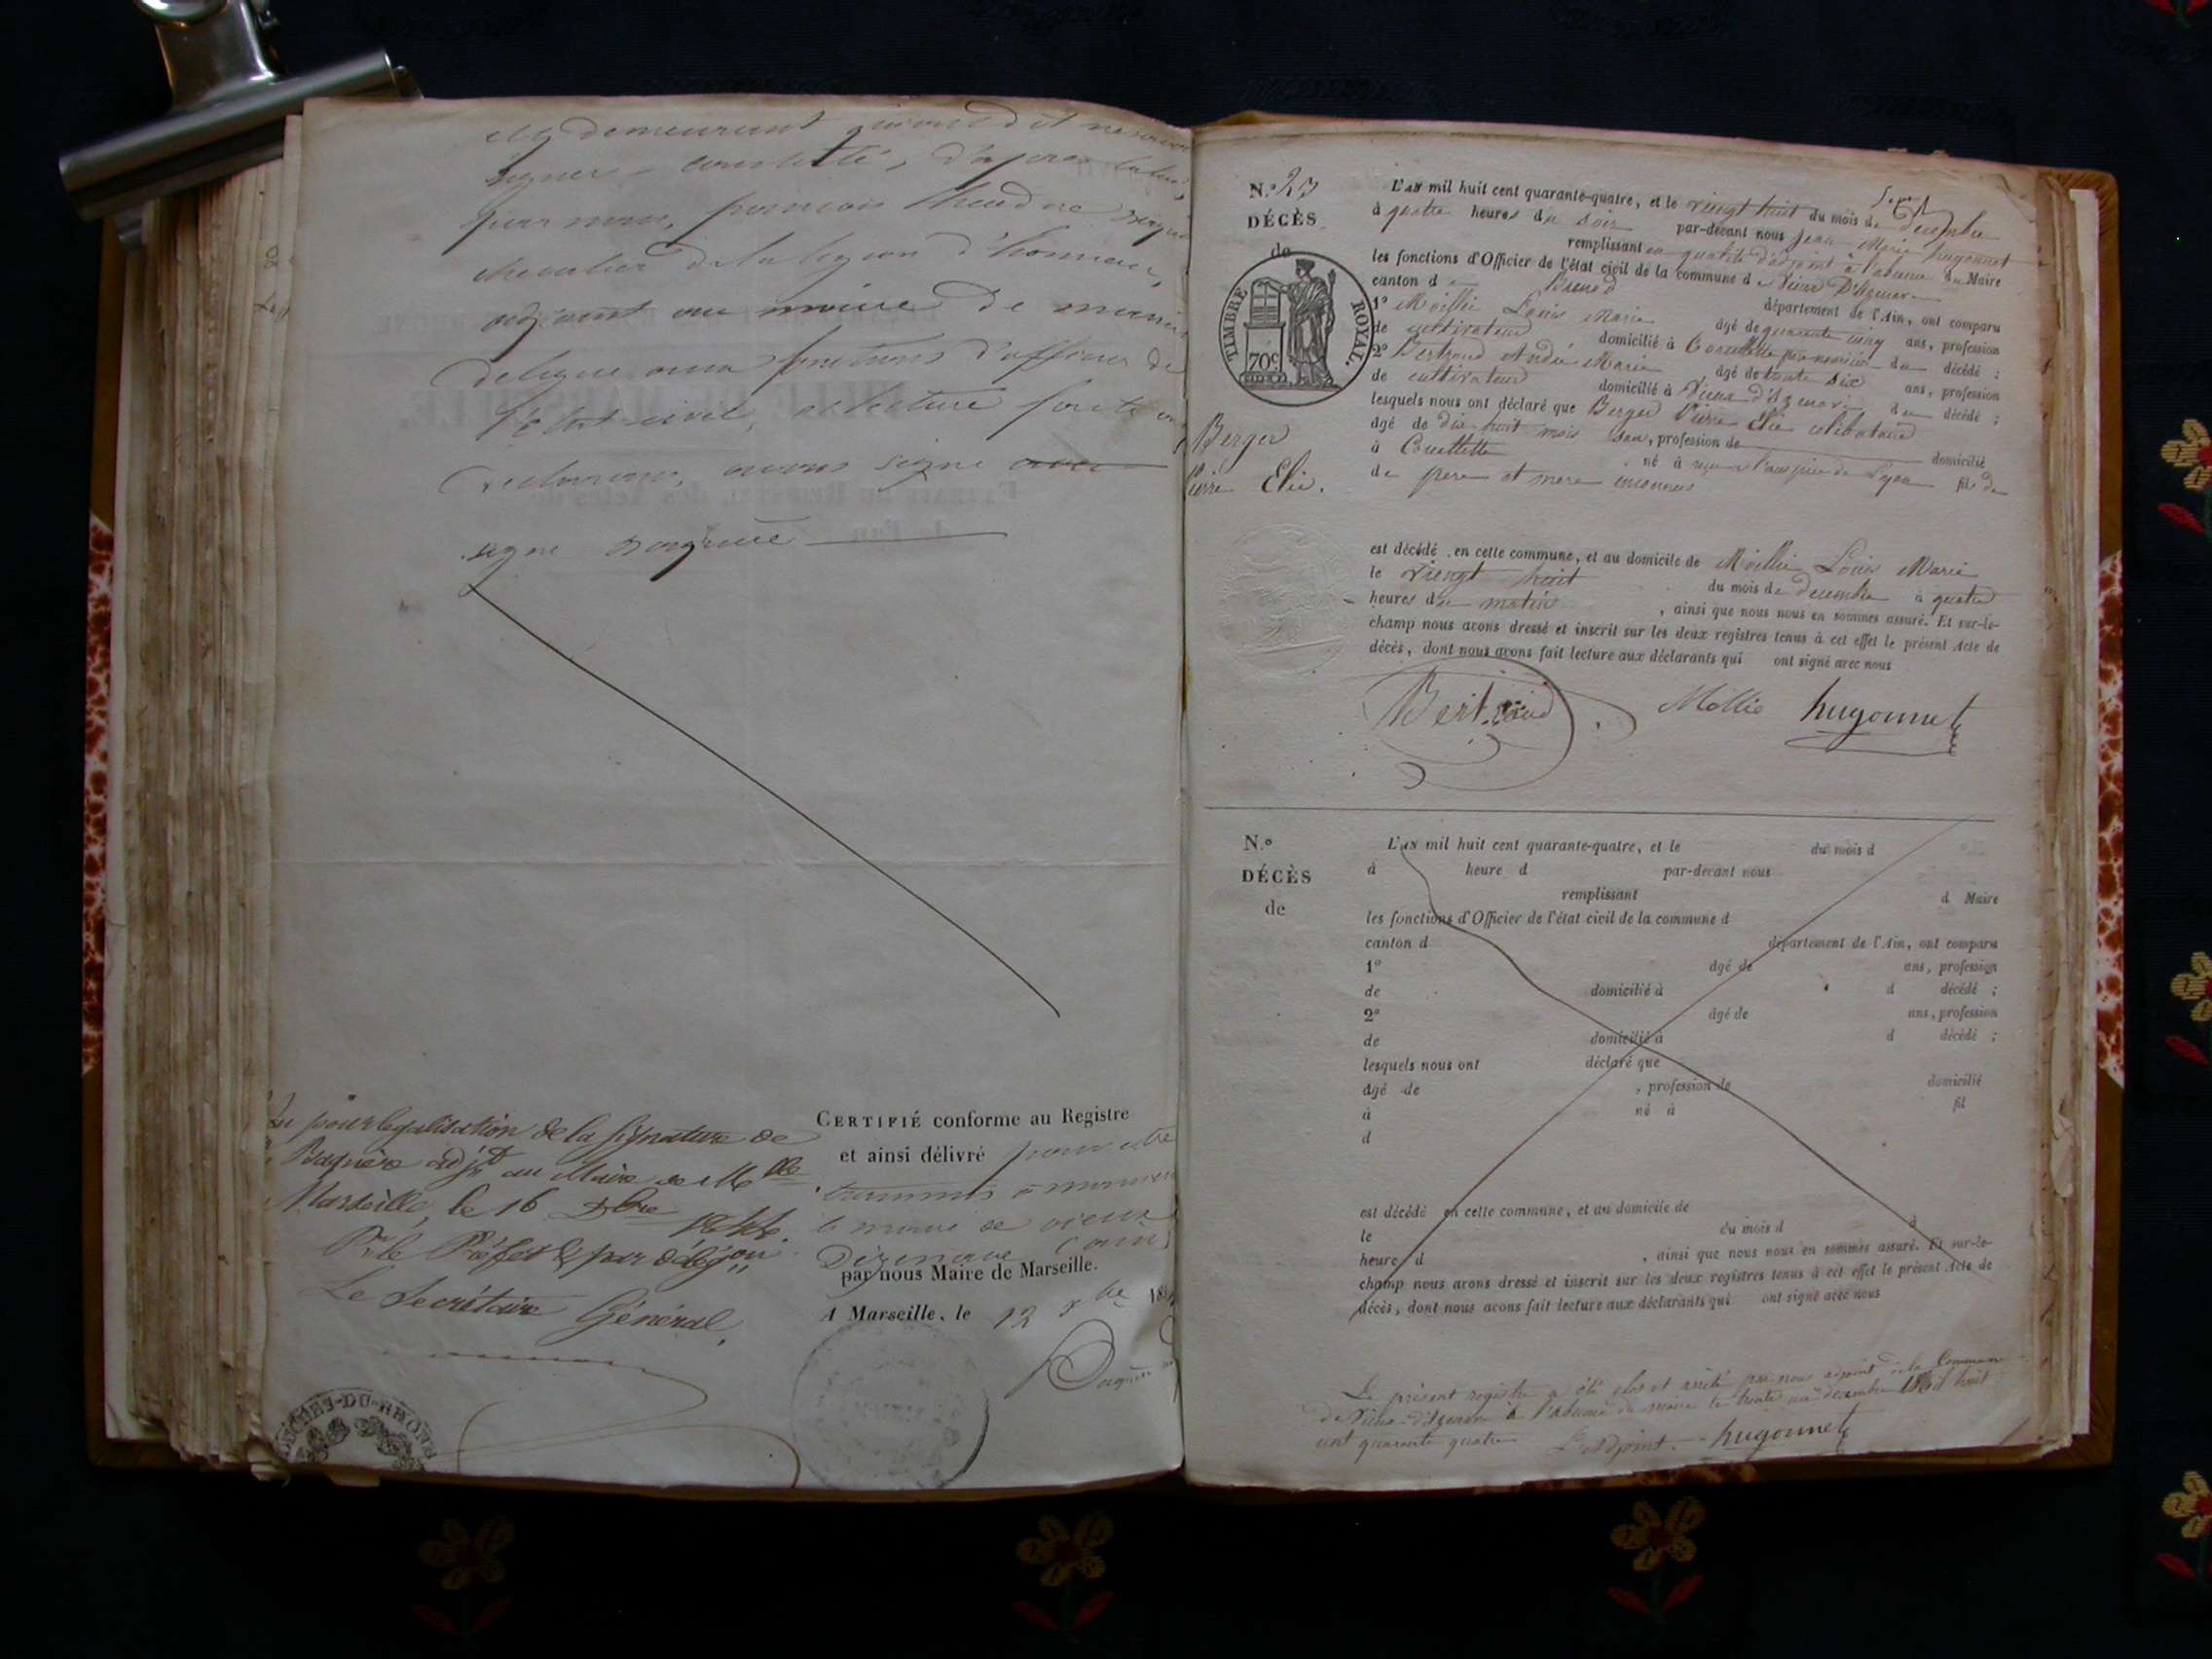 demeurant qui ont dit ne savoir
signer constaté, d'après
par nous, françois theodore
chevalier de la legion d'honneur,
adjoint au maire de
delegué aux fonctions d'officier de
l'etat civil, et lecture faite
avons signé avec
signé
Vu pour légalisation de la signature de
adjt au Maire de Mlle
Marseille, le 16 Xbre
Pr le Préfet & par délégon
Le Secrétaire Général,
CERTIFIÉ conforme au Registre
et ainsi délivré pour etre
transmis a monsieur
le maire de vieux
Dizenave (ain)
par nous Maire de Marseille.
A Marseille, le 12 Xbre
-DU-RHÔNE
N.° 23
DÉCÈS
de
TIMBRE ROYAL.
70c
Berger
Pierre Elie.
L'AN mil huit cent quarante-quatre, et le vingt huit du mois de decembre
à quatre heures du soir par-devant nous Jean Marie hugonnet
remplissant en qualité d'adjoint à l'absence du Maire
les fonctions d'Officier de l'état civil de la commune de Vieux D'Izenave
canton d Brenod département de l'Ain, ont comparu
1° Moillie Louis Marie âgé de quarante cinq ans, profession
de cultivateur domicilié à du décédé ;
2° Bertrand André Marie âgé de trente six ans, profession
de cultivateur domicilié à Vieux d'Izenave du décédé ;
lesquels nous ont déclaré que Berger Pierre Elie celibataire
âgé de dix huit mois , profession de domicilié
à né à l'hospice de Lyon fils de
de pere et mere inconnus
est décédé en cette commune, et au domicile de Moillie Louis Marie
le vingt huit du mois de decembre à quatre
heures du matin , ainsi que nous nous en sommes assuré. Et sur-le-
champ nous avons dressé et inscrit sur les deux registres tenus à cet effet le présent Acte de
décès, dont nous avons fait lecture aux déclarants qui ont signé avec nous
Bertrand Mollie hugonnet
N.°
DÉCÈS
de
L'AN mil huit cent quarante-quatre, et le du mois d
à heure d par-devant nous
remplissant d Maire
les fonctions d'Officier de l'état civil de la commune d
canton d département de l'Ain, ont comparu
1° âgé de ans, profession
de domicilié à d décédé ;
2° âgé de ans, profession
de domicilié à d décédé ;
lesquels nous ont déclaré que
âgé de , profession de domicilié
à né à fil
d
est décédé en cette commune, et au domicile de
le du mois d à
heure d , ainsi que nous nous en sommes assuré. Et sur-le-
champ nous avons dressé et inscrit sur les deux registres tenus à cet effet le présent Acte de
décès, dont nous avons fait lecture aux déclarants qui ont signé avec nous
Le présent registre a été clos et arrêté par nous adjoint de la Commune
de Vieux-d'Izenave à l'absence du maire le trente un decembre mil huit
cent quarante quatre L'adjoint. hugonnet